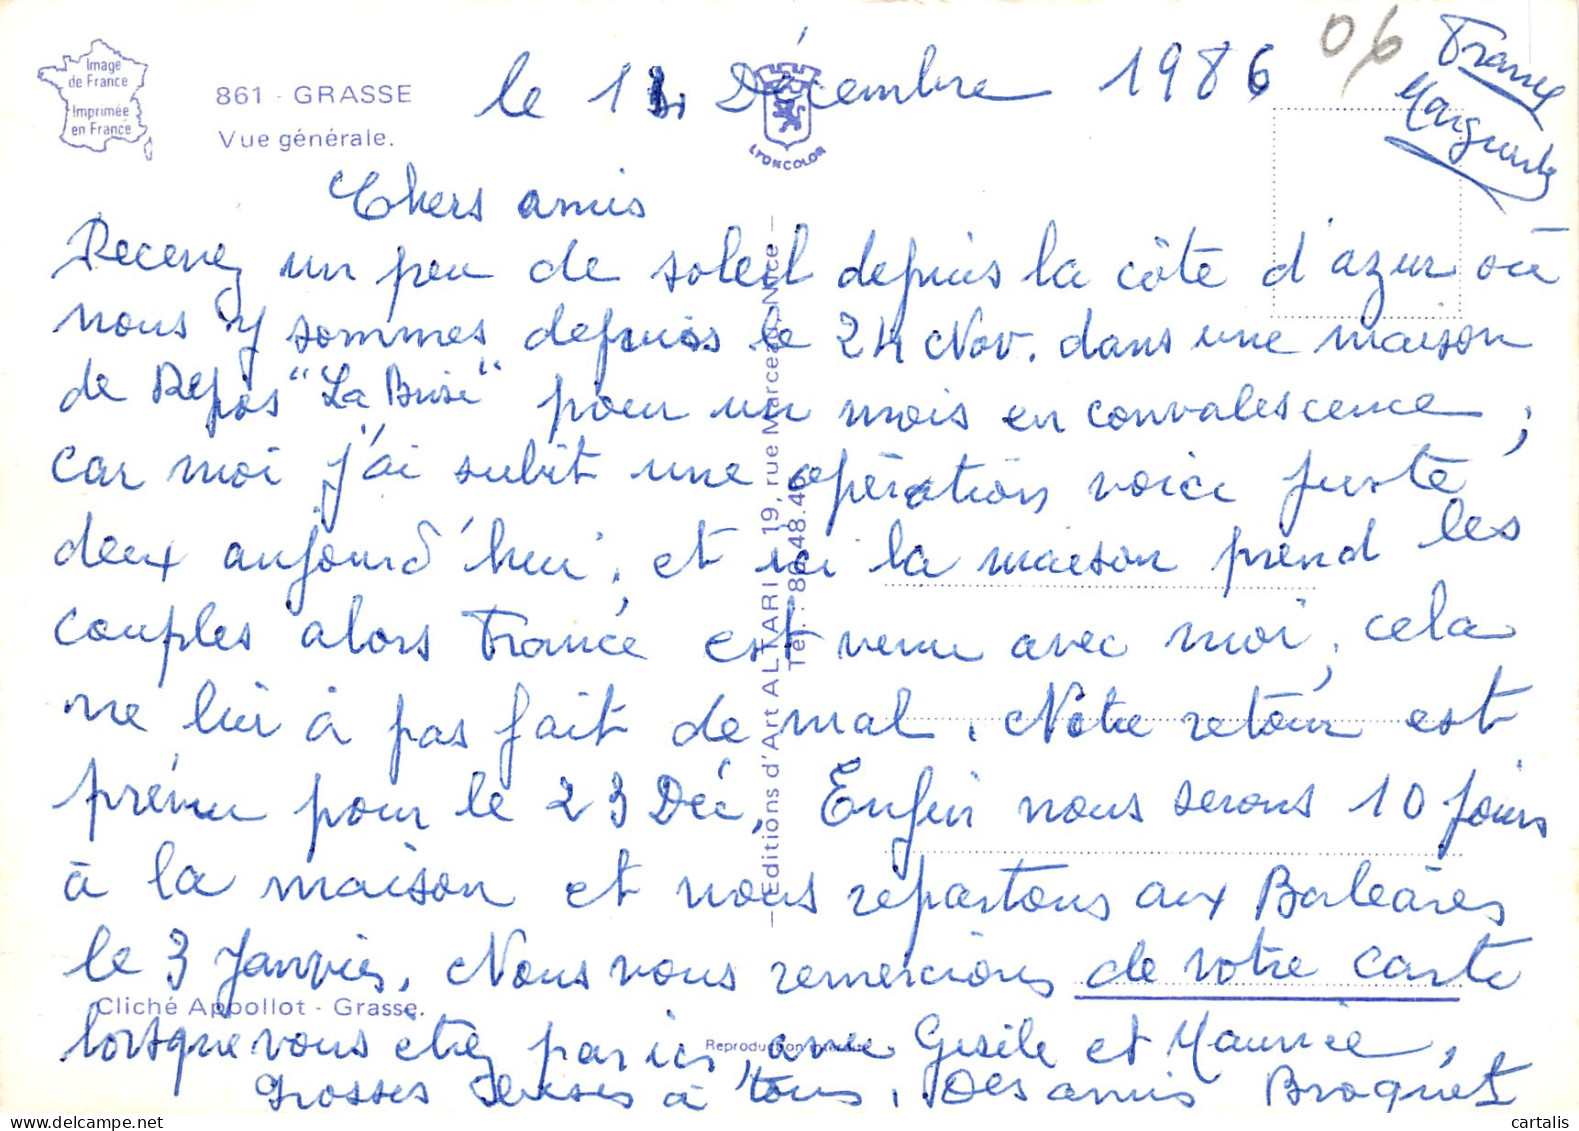 Image
de France
Imprimée
en France
861 - GRASSE
Vue générale.
le 11 Décembre 1986
06
France
Marguerite
LYONCOLOR
Chers amis
Recevez un peu de soleil depuis la côte d'azur où
nous y sommes depuis le 24 Nov. dans une maison
de Repos "La Brise" pour un mois en convalescence,
car moi j'ai subit une opération voici juste
deux aujourd'hui, et ici la maison prend les
couples alors France est venu avec moi, cela
ne lui à pas fait de mal. Notre retour est
prévu pour le 23 Déc, Enfin nous serons 10 jours
à la maison et nous repartons aux Barléares
le 3 Janvier. Nous vous remercions de votre carte
Cliché Appollot - Grasse.
lorsque vous étiez par ici, avec Gisèle et Maurice,
Grosses à tous. Des amis Broquet
Editions d'Art ALTARI - 19, rue Marceau - Nice
Tél. : 80.48.46
Reproduction
cartalis on Delcampe.net